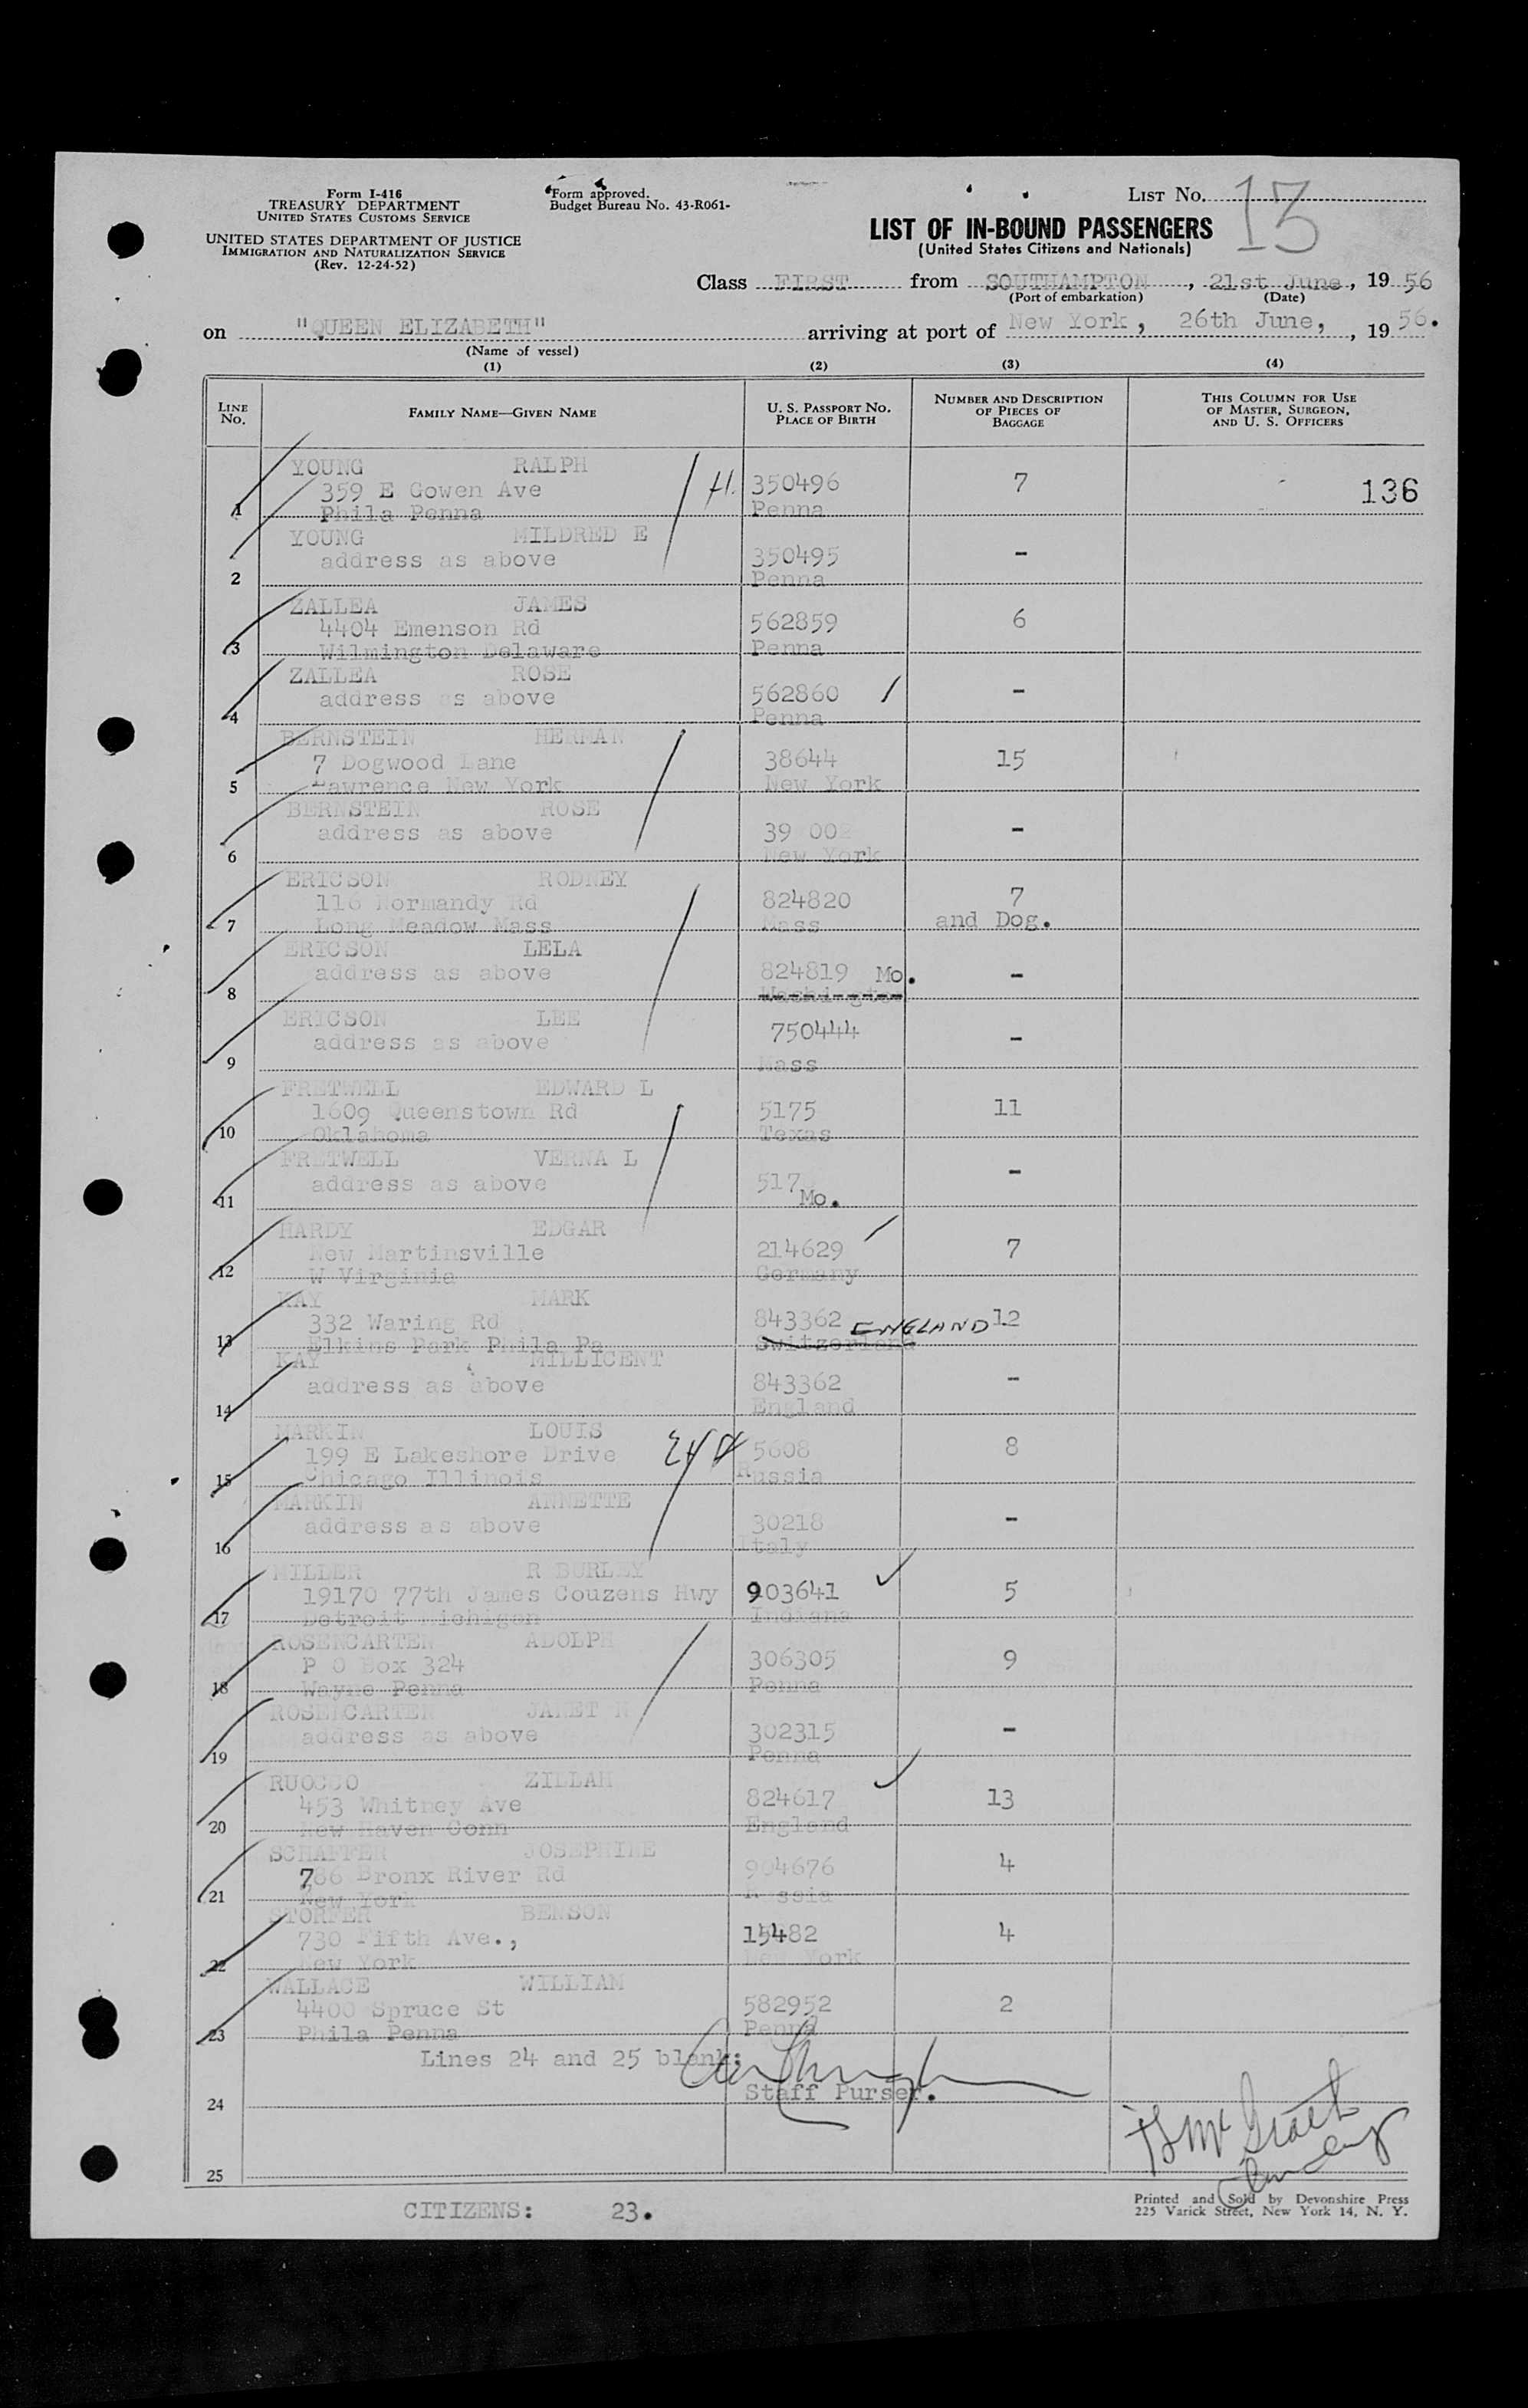 Form I-416
TREASURY DEPARTMENT
UNITED STATES CUSTOMS SERVICE
UNITED STATES DEPARTMENT OF JUSTICE
IMMIGRATION AND NATURALIZATION SERVICE
(Rev. 12-24-52)
Form approved.
Budget Bureau No. 43-R061-
LIST NO. 13
LIST OF IN-BOUND PASSENGERS
(United States Citizens and Nationals)
Class FIRST from SOUTHAMPTON, 21st June, 19 56
(Port of embarkation) (Date)
on "QUEEN ELIZABETH" arriving at port of New York, 26th June, , 19 56.
(Name of vessel)
(1) (2) (3) (4)
LINE NO. FAMILY NAME—GIVEN NAME U. S. PASSPORT NO. PLACE OF BIRTH NUMBER AND DESCRIPTION OF PIECES OF BAGGAGE THIS COLUMN FOR USE OF MASTER, SURGEON, AND U. S. OFFICERS
YOUNG RALPH
359 E Gowen Ave 350496 7 136
1 Phila Penna Penna
YOUNG MILDRED E
address as above 350495 -
2 Penna
ZALLEA JAMES
4404 Emenson Rd 562859 6
3 Wilmington Delaware Penna
ZALLEA ROSE
address as above 562860 -
4 Penna
BERNSTEIN HERMAN
7 Dogwood Lane 38644 15
5 Lawrence New York New York
BERNSTEIN ROSE
address as above 39 002 -
6 New York
ERICSON RODNEY
116 Normandy Rd 824820 7
7 Long Meadow Mass Mass and Dog.
ERICSON LELA
address as above 824819 Mo. -
8 Washington
ERICSON LEE
address as above 750444 -
9 Mass
FRETWELL EDWARD L
1609 Queenstown Rd 5175 11
10 Oklahoma Texas
FRETWELL VERNA L
address as above 517 -
11 Mo.
HARDY EDGAR
New Martinsville 214629 7
12 W Virginia Germany
KAY MARK
332 Waring Rd 843362 ENGLAND 12
13 Elkins Park Phila Pa Switzerland
KAY MILLICENT
address as above 843362 -
14 England
MARKIN LOUIS
199 E Lakeshore Drive 5608 8
15 Chicago Illinois Russia
MARKIN ANNETTE
address as above 30218 -
16 Italy
MILLER R BURLEY
19170 77th James Couzens Hwy 903641 5
17 Detroit Michigan Indiana
ROSENGARTEN ADOLPH
P O Box 324 306305 9
18 Wayne Penna Penna
ROSENGARTEN JANET N
address as above 302315 -
19 Penna
RUOCCO ZILLAH
453 Whitney Ave 824617 13
20 New Haven Conn England
SCHAFFER JOSEPHINE
786 Bronx River Rd 904676 4
21 New York Russia
STORFER BENSON
730 Fifth Ave., 15482 4
22 New York New York
WALLACE WILLIAM
4400 Spruce St 582952 2
23 Phila Penna Penna
Lines 24 and 25 blank;
Staff Purser.
24
25
CITIZENS: 23.
Printed and Sold by Devonshire Press
225 Varick Street, New York 14, N. Y.